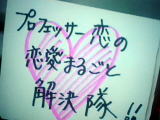 プロフェッサー恋の
恋愛まるごと
解決隊!!